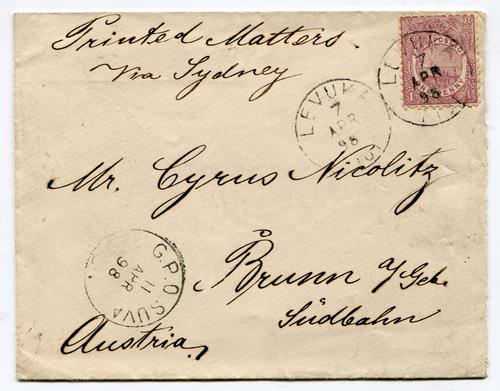 Printed Matters.
Via Sydney
LEVUKA
7
APR
98
FIJI
LEVUKA
7
APR
98
FIJI
POSTAGE
Mr. Cyrus Nicolitz
G.P.O. SUVA
11
APR
98
Brunn a/Geb.
Südbahn
Austria